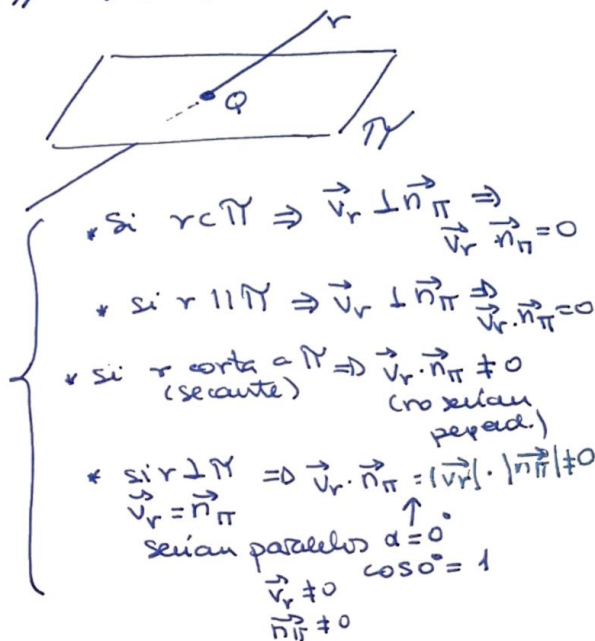 r
Q
π
* Si r⊂π ⇒ v⃗r ⊥ n⃗π ⇒
v⃗r · n⃗π = 0
* si r || π ⇒ v⃗r ⊥ n⃗π ⇒
v⃗r · n⃗π = 0
* si r corta a π ⇒ v⃗r · n⃗π ≠ 0
(secante) (no serían
perpend.)
* si r ⊥ π ⇒ v⃗r · n⃗π = |v⃗r| · |n⃗π| ≠ 0
v⃗r = n⃗π ↑
serían paralelos α = 0°
cos 0° = 1
v⃗r ≠ 0
n⃗π ≠ 0